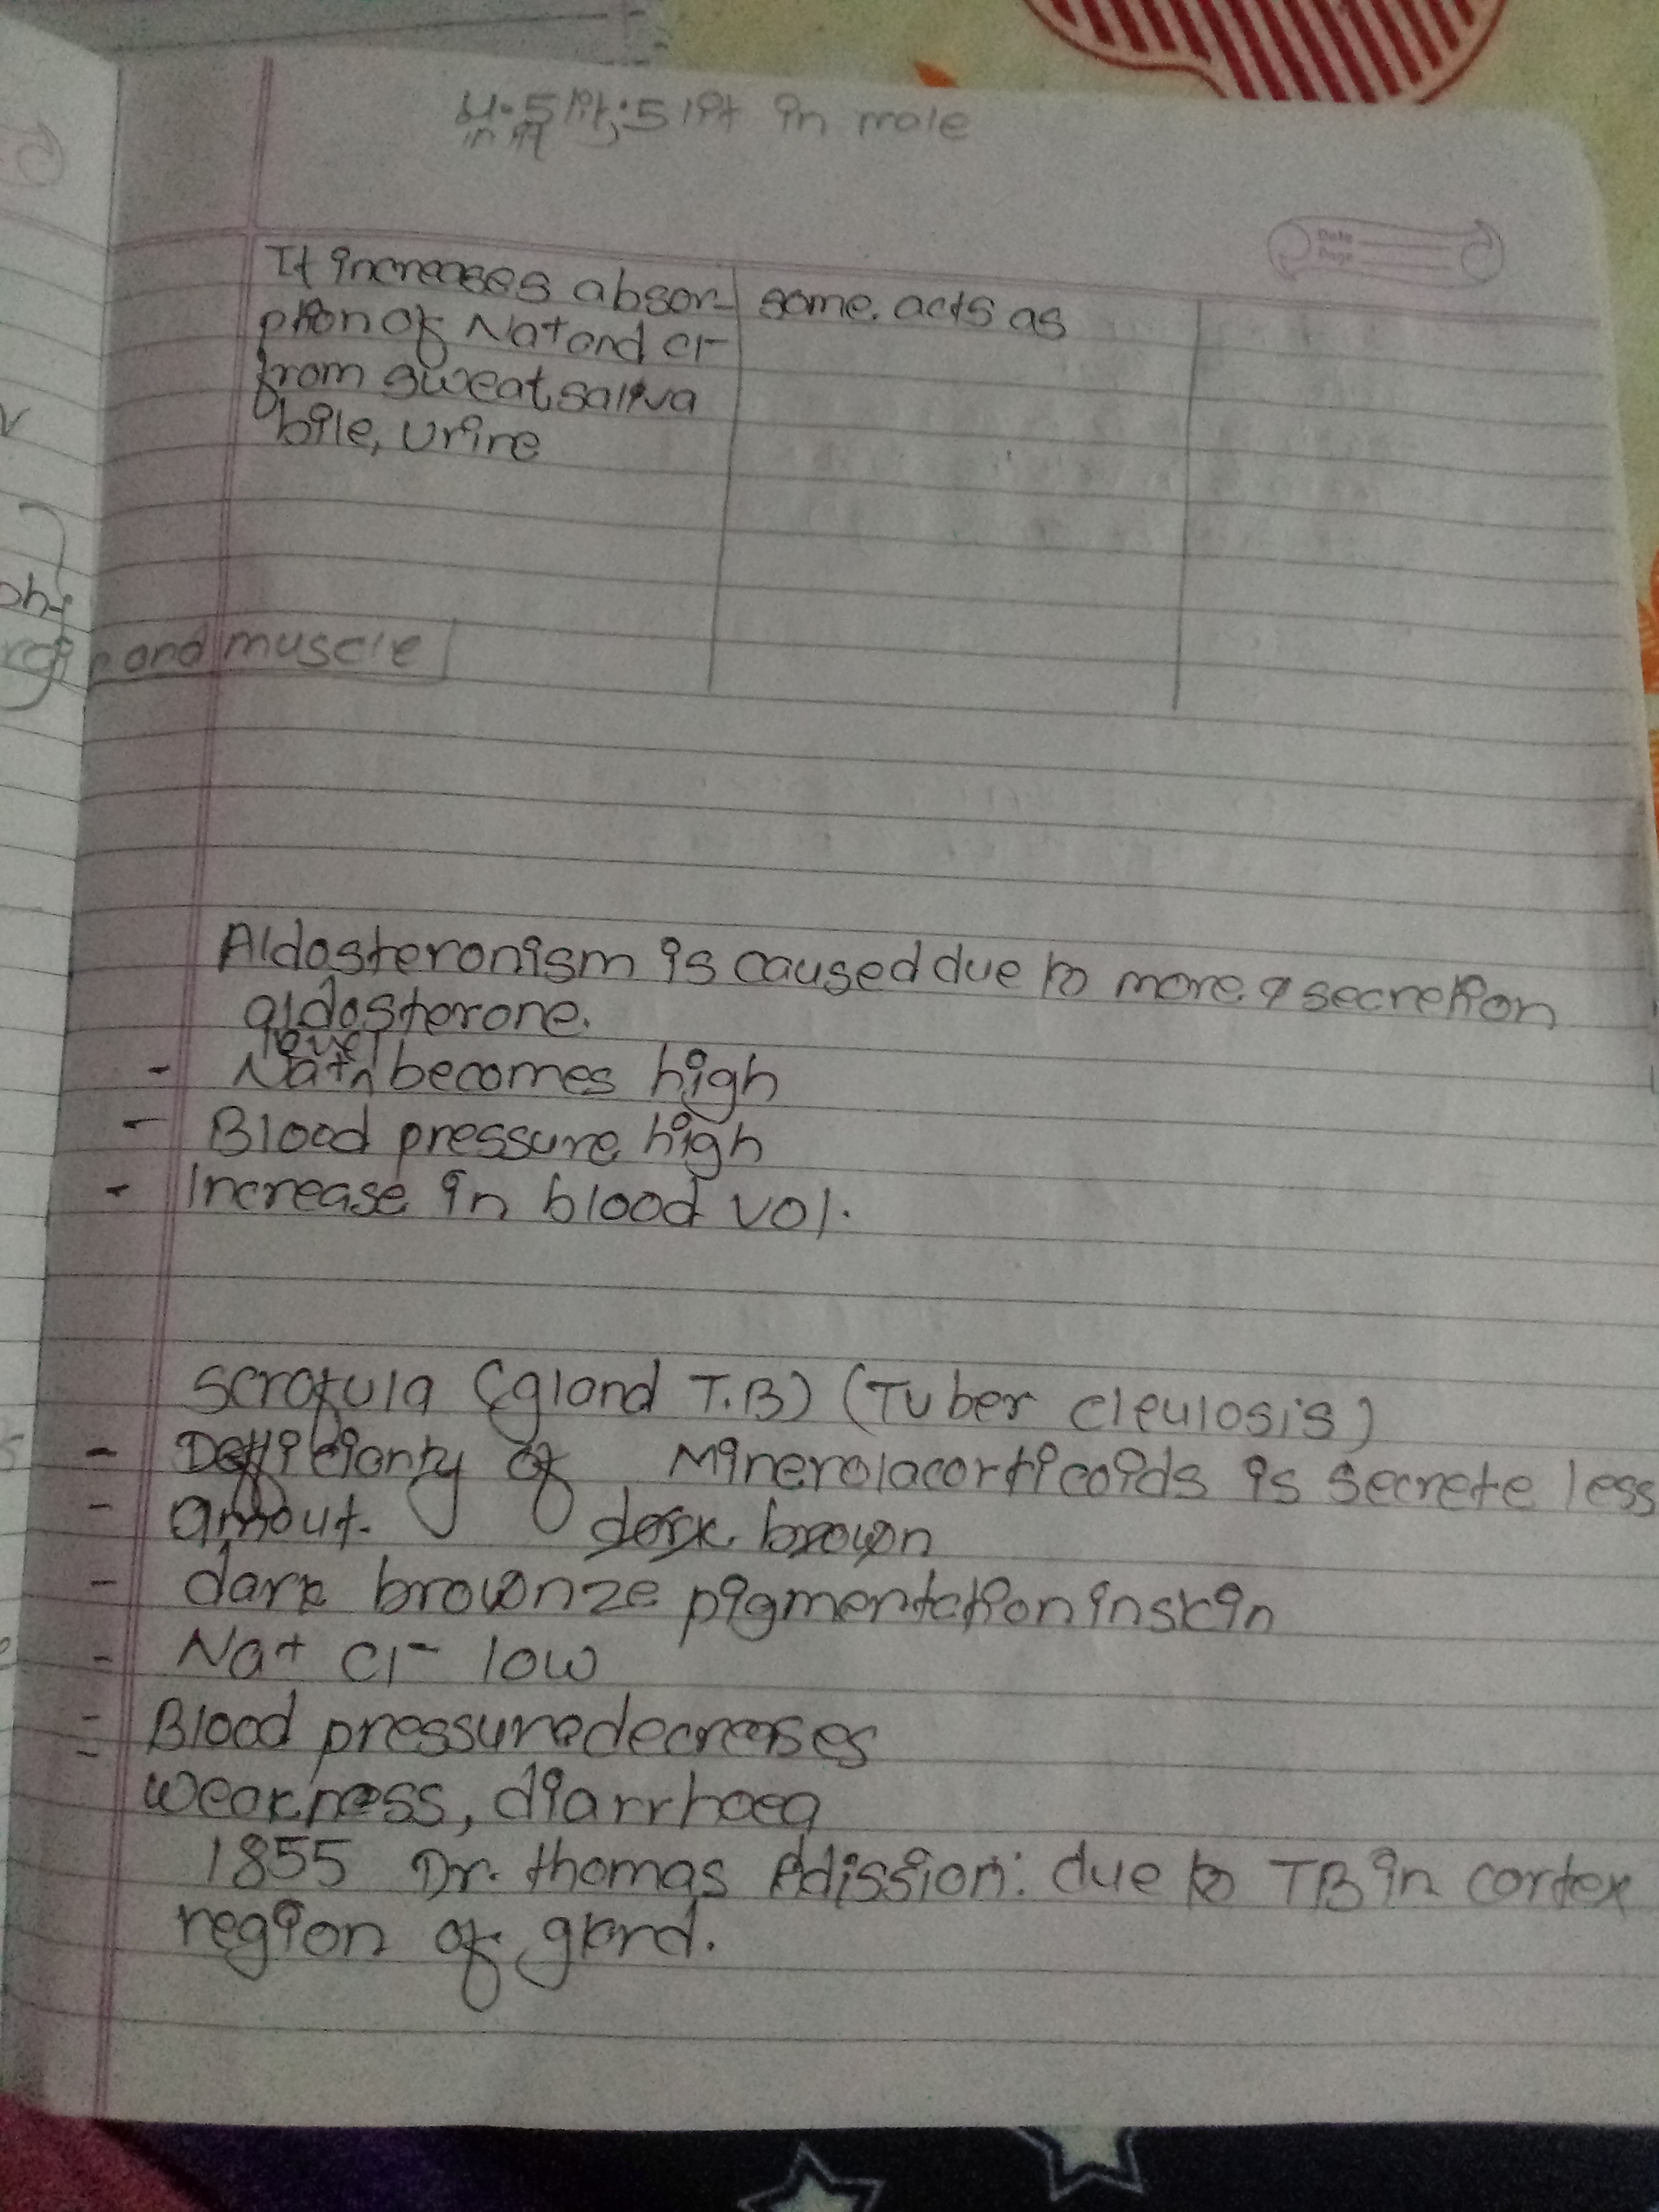 4.5 lit, 5 lit in male
in
Date
Page
It increases absor- some. acts as
ption of Na+ and cl-
from sweat, saliva
bile, urine
and muscle
Aldosteronism is caused due to more secretion
aldosterone.
level
- Na+ becomes high
- Blood pressure high
- Increase in blood vol.
Scrofula (gland T.B) (Tuber cleulosis)
- of Minerolacorticoids is secrete less
- amout. dark brown
- dark brownze pigmentation in skin
- Na+ cl- low
- Blood pressure decreases
- weakness, diarrhoea
1855 Dr. thomas Adission: due to TB in cortex
region of gland.